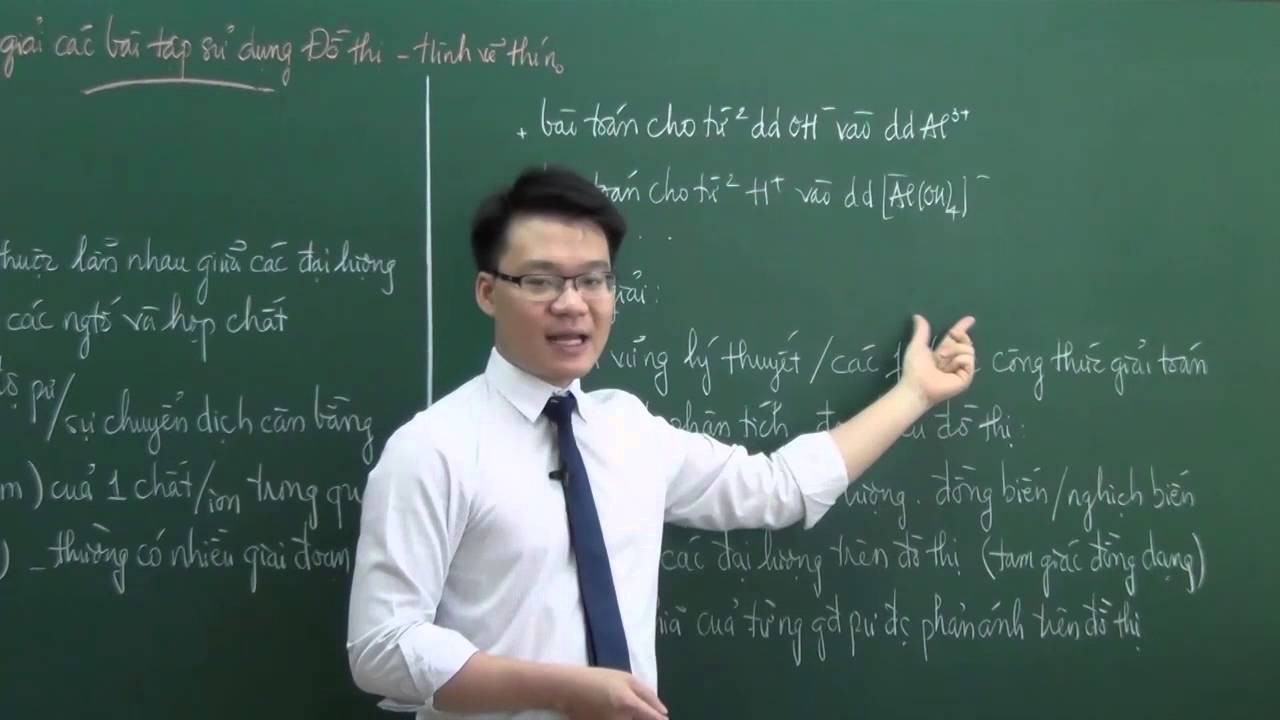 giải các bài tập sử dụng Đồ thị – Hình vẽ thí n
thuộc lẫn nhau giữa các đại lượng
các ngtố và hợp chất
pư/sự chuyển dịch cân bằng
) của 1 chất/ion trong qu
) – thường có nhiều giai đoạn
+ bài toán cho từ² dd OH⁻ vào dd Al³⁺
toán cho từ² H⁺ vào dd [Al(OH)₄]⁻
. .
giải:
vững lý thuyết / các công thức giải toán
phân tích đồ thị:
lượng. đồng biến/nghịch biến
các đại lượng trên đồ thị (tam giác đồng dạng)
của từng gđ pư đc phản ánh trên đồ thị